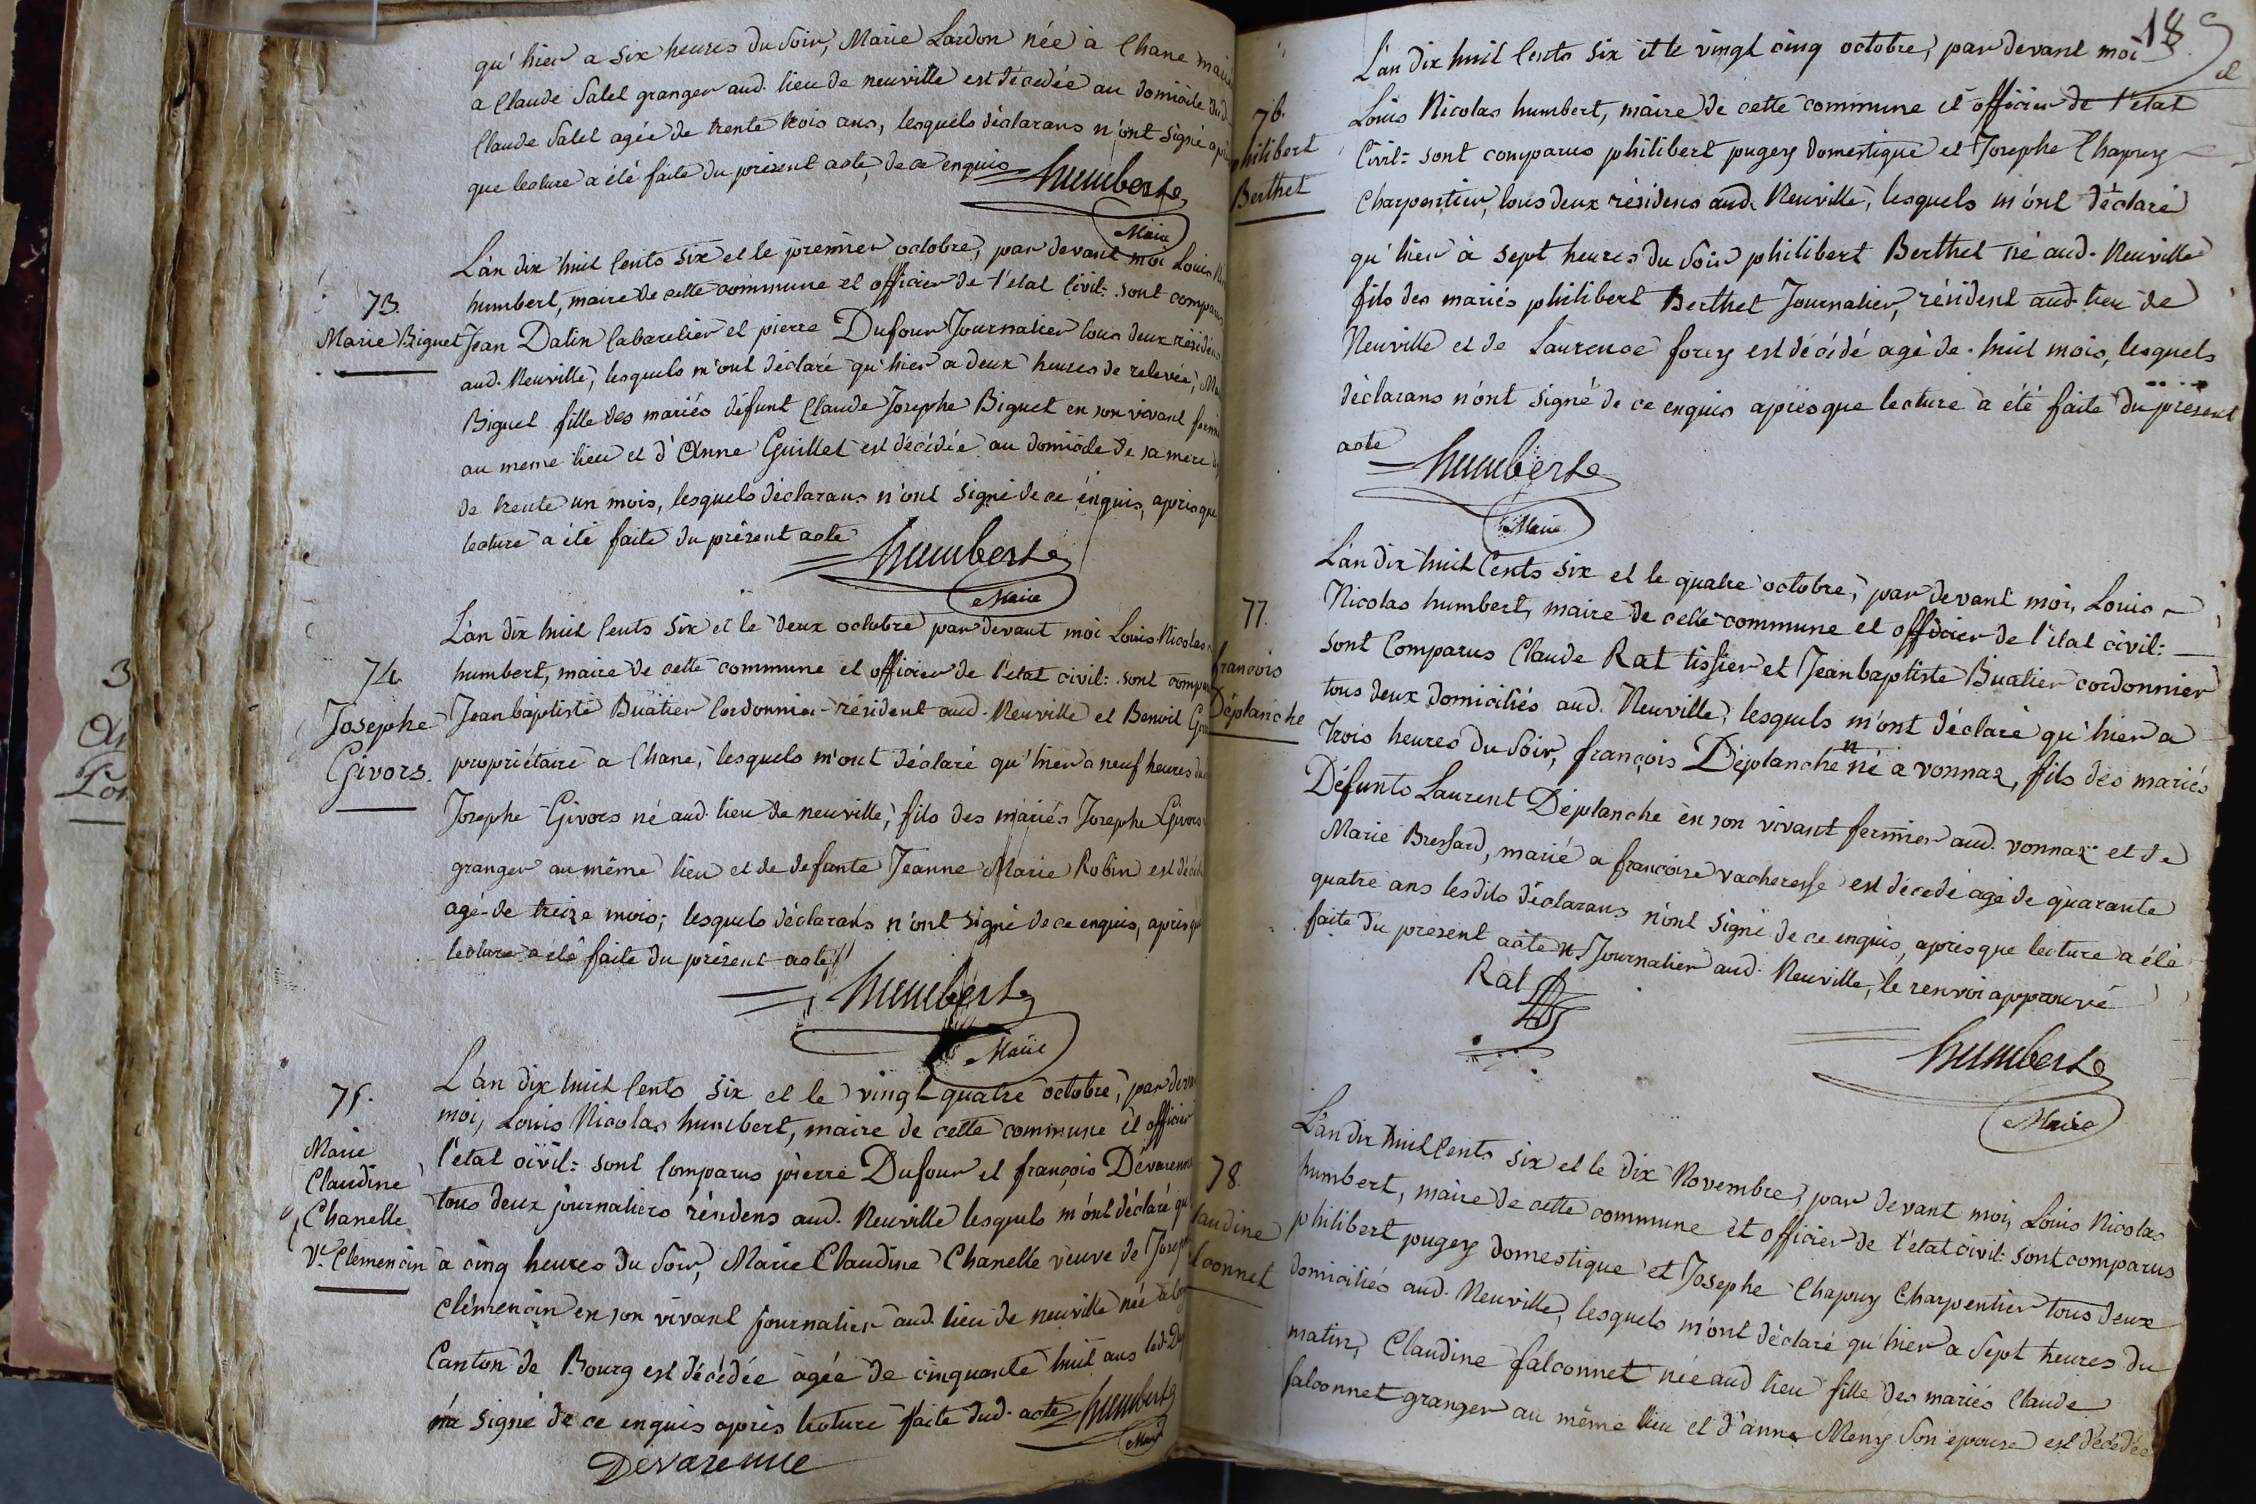 qu'hier a six heures du soir, Marie Lardon née à Chane mariée
a Claude Salel granger aud. lieu de neuville est décédée au domicile dud.
Claude Salel agée de trente trois ans, lesquels déclarans n'ont signé après
que lecture a été faite du présent acte, de ce enquis humbert
Maire
73.
Marie Biguet
L'an dix huit cents six et le premier octobre, par devant moi Louis
humbert, maire de cette commune et officier de l'état civil: sont comparus
Jean Dalin Cabaretier et pierre Dufour Journalier tous deux résidens
aud. Neuville, lesquels m'ont déclaré qu'hier a deux heures de relevée,
Biguet fille des mariés défunt Claude Josephe Biguet en son vivant fermier
au meme lieu et d'Anne Guillet est décédée au domicile de sa mere
de trente un mois, lesquels déclarans n'ont signé de ce enquis, après que
lecture a été faite du présent acte
humbert
Maire
74.
Josephe
Givors.
L'an dix huit cents six et le deux octobre par devant moi Louis Nicolas
humbert, maire de cette commune et officier de l'état civil: sont comparus
Jean baptiste Buatier Cordonnier résident aud. Neuville et Benoit
propriétaire a Chane, lesquels m'ont déclaré qu'hier a neuf heures du
Josephe Givors né aud. lieu de neuville, fils des mariés Josephe Givors
granger au même lieu et de défunte Jeanne Marie Robin est décédé
agé de treize mois; lesquels déclarans n'ont signé de ce enquis, après que
lecture a été faite du présent acte
humbert
Maire
75.
Marie
Claudine
Chanelle
Ve. Clemencin
L'an dix huit cents six et le vingt quatre octobre, par devant
moi, Louis Nicolas humbert, maire de cette commune et officier
l'état civil: sont comparus pierre Dufour et françois Dévarenne
tous deux journaliers résidens aud. Neuville lesquels m'ont déclaré qu'
à cinq heures du soir, Marie Claudine Chanelle veuve de Joseph
clémencin en son vivant journalier aud. lieu de neuville née
Canton de Bourg est décédée agée de cinquante huit ans led.
n'a signé de ce enquis après lecture faite dud. acte humbert
Maire
Devarenne
18
76.
philibert
Berthet
L'an dix huit cents six et le vingt cinq octobre, par devant moi
Louis Nicolas humbert, maire de cette commune et officier de l'état
Civil: sont comparus philibert pugey domestique et Josephe Chapuy
Charpentier, tous deux résidens aud. Neuville, lesquels m'ont déclaré
qu'hier à sept heures du soir philibert Berthet né aud. Neuville
fils des mariés philibert Berthet Journalier, résident aud. lieu de
Neuville et de Laurence forey est décédé agé de huit mois, lesquels
déclarans n'ont signé de ce enquis après que lecture a été faite du présent
acte
humbert
Maire
77.
francois
Déplanche
L'an dix huit cents six et le quatre octobre, par devant moi, Louis
Nicolas humbert, maire de cette commune et officier de l'état civil:
sont comparus Claude Rat tissier et Jean baptiste Buatier cordonnier
tous deux domiciliés aud. Neuville, lesquels m'ont déclaré qu'hier a
trois heures du soir, françois Déplanche né a vonnaz, fils des mariés
Défunts Laurent Déplanche en son vivant fermier aud. vonnaz et de
Marie Bressard, marié a françoise vacheresse est décédé agé de quarante
quatre ans lesdits déclarans n'ont signé de ce enquis, après que lecture a été
faite du présent acte Journalier aud. Neuville, le renvoi approuvé
Rat
humbert
Maire
78.
Claudine
falconnet
L'an dix huit cents six et le dix Novembre, par devant moi, Louis Nicolas
humbert, maire de cette commune et officier de l'état civil: sont comparus
philibert pugey domestique et Josephe Chapuy Charpentier tous deux
domiciliés aud. Neuville, lesquels m'ont déclaré qu'hier a sept heures du
matin, Claudine falconnet née aud lieu fille des mariés Claude
falconnet granger au même lieu et d'anne Meny son epouse est décédée